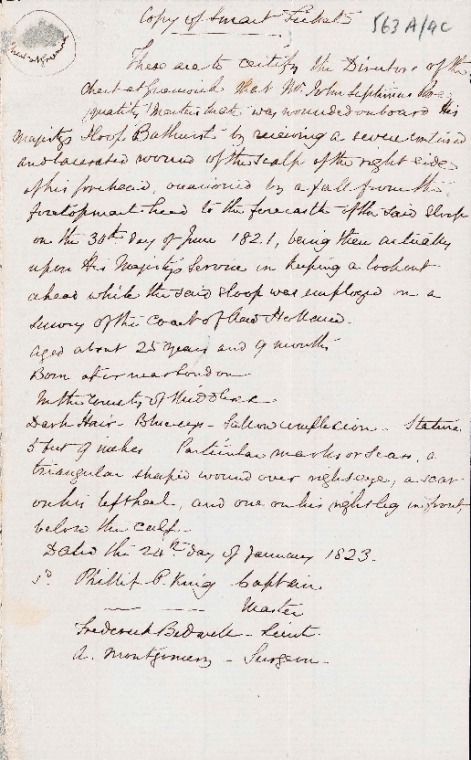 Copy of Smart Ticket
563 A/4c
These are to certify the Directors of the
Chest at Greenwich that Mr. John Septimus Roe
quality Masters Mate was wounded on board His
Majestys Sloop Bathurst by receiving a severe contused
and lacerated wound of the scalp of the right side
of his forehead, occasioned by a fall from the
foretopmast head to the forecastle of the said Sloop
on the 30th day of June 1821, being then actually
upon His Majesty's Service in keeping a look out
ahead while the said sloop was employed on a
survey of the coast of New Holland.
aged about 25 years and 9 months
Born at or near London
In the County of Middlesex
Dark Hair - Blue eyes - Sallow complexion - Stature
5 feet 9 inches Particular marks or scars, a
triangular shaped wound over right eye, a scar
on his left heel, and one on his right leg in front
below the calf.
Dated the 24th day of January 1823.
sd. Phillip P. King Captain
Master
Frederick Bedwell - Lieut
A. Montgomery - Surgeon -